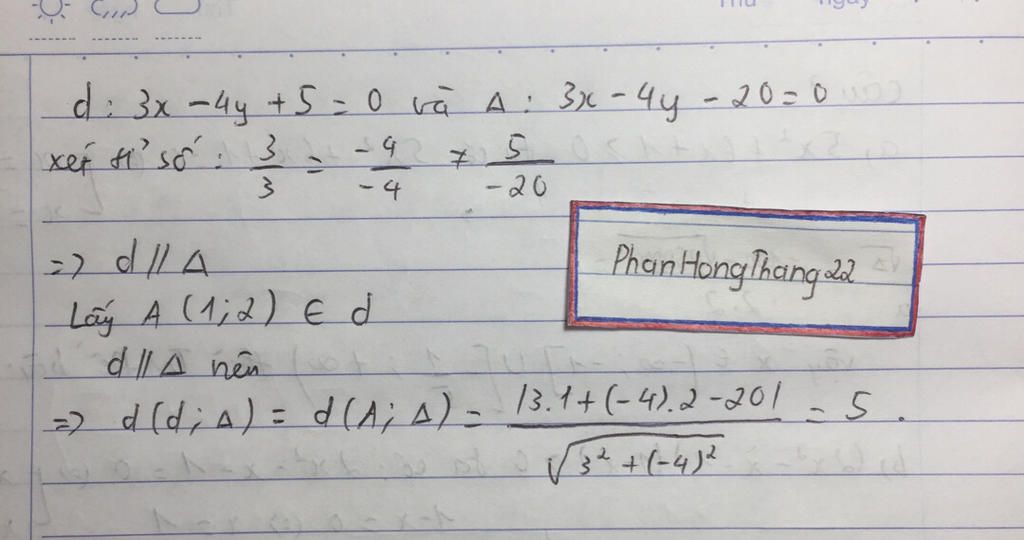 Thứ ngày
d : 3x - 4y + 5 = 0 và Δ : 3x - 4y - 20 = 0
xét tỉ số : 3/3 = -4/-4 ≠ 5/-20
=> d // Δ
PhanHongThang22
Lấy A (1;2) ∈ d
d // Δ nên
=> d(d;Δ) = d(A;Δ) = |3.1+(-4).2-20| / √(3²+(-4)²) = 5 .